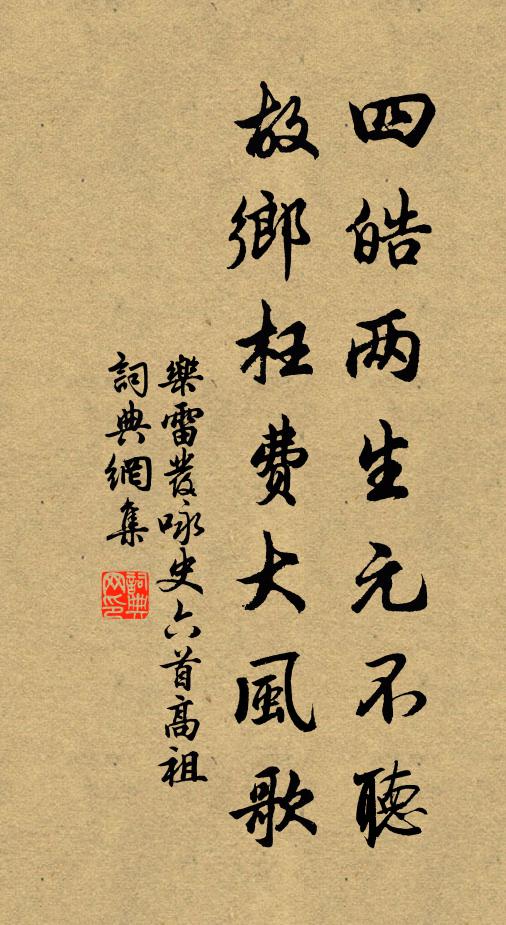 四皓两生元不聽
故鄉枉費大風歌
樂雷發咏史六首高祖
詞典網集
詞典网印